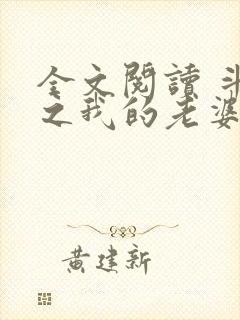 全文閱讀 斗
之我的老婆
黄建新